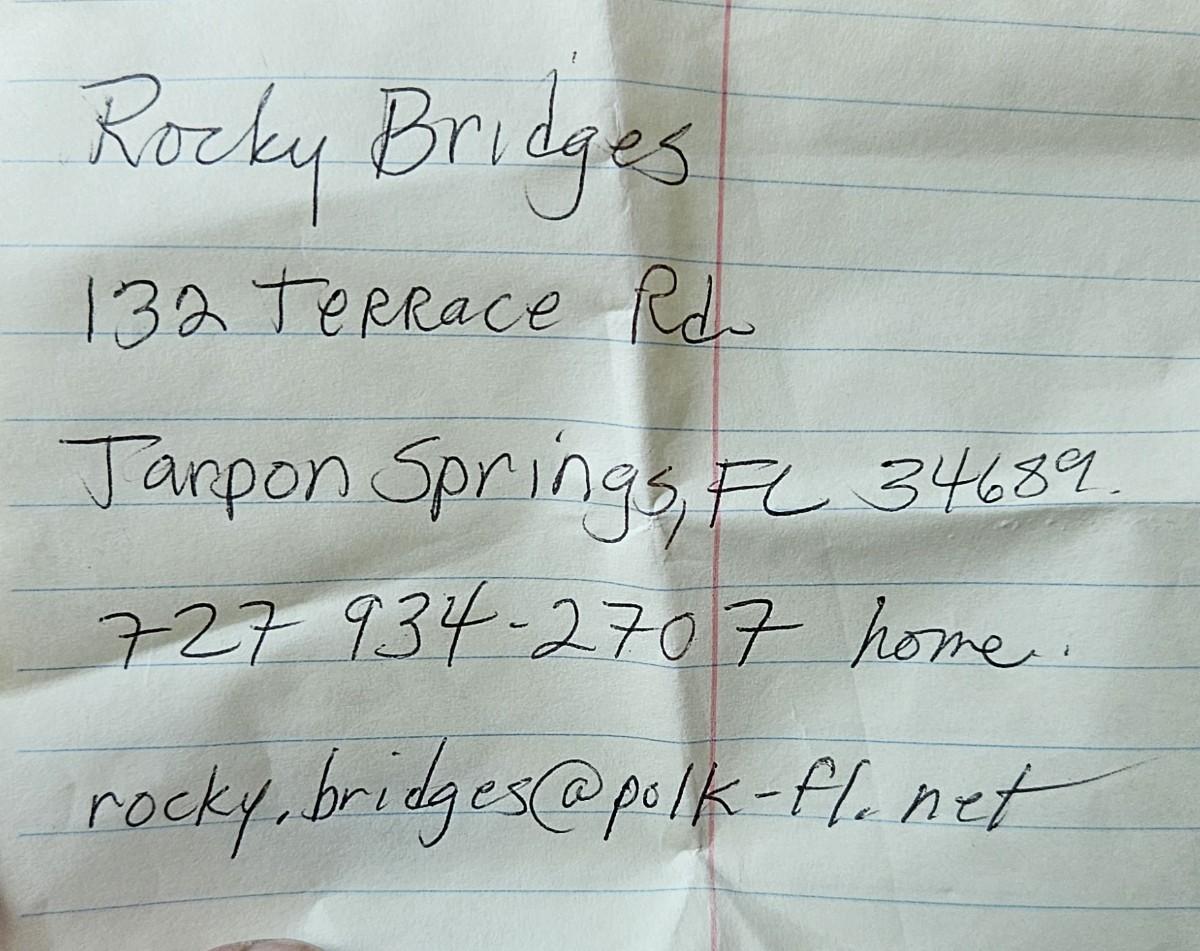 Rocky Bridges
132 Terrace Rd.
Tarpon Springs, FL 34689.
727 934-2707 home.
rocky.bridges@polk-fl.net